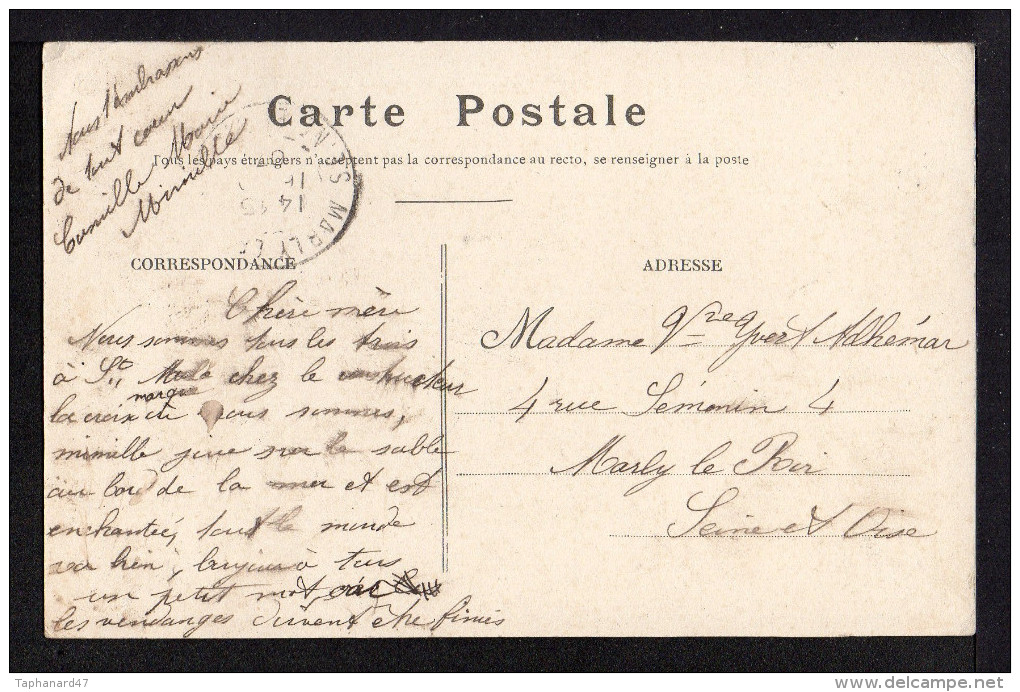 Nous t'embrassons
de tout cœur
Camille Marie
Mimille
Carte Postale
Tous les pays étrangers n'acceptent pas la correspondance au recto, se renseigner à la poste
MARLY
14 15
CORRESPONDANCE
ADRESSE
Chère mère
Nous sommes tous les trois
à St Malo chez le constructeur
la croix marque où nous sommes,
mimille joue sur le sable
au bord de la mer et est
enchantée, tout le monde
va bien,
un petit mot,
les vendanges doivent être finies
Madame Vve Yvert Adhémar
4 rue Sémonin 4
Marly le Roi
Seine et Oise
Taphanard47
www.delcampe.net